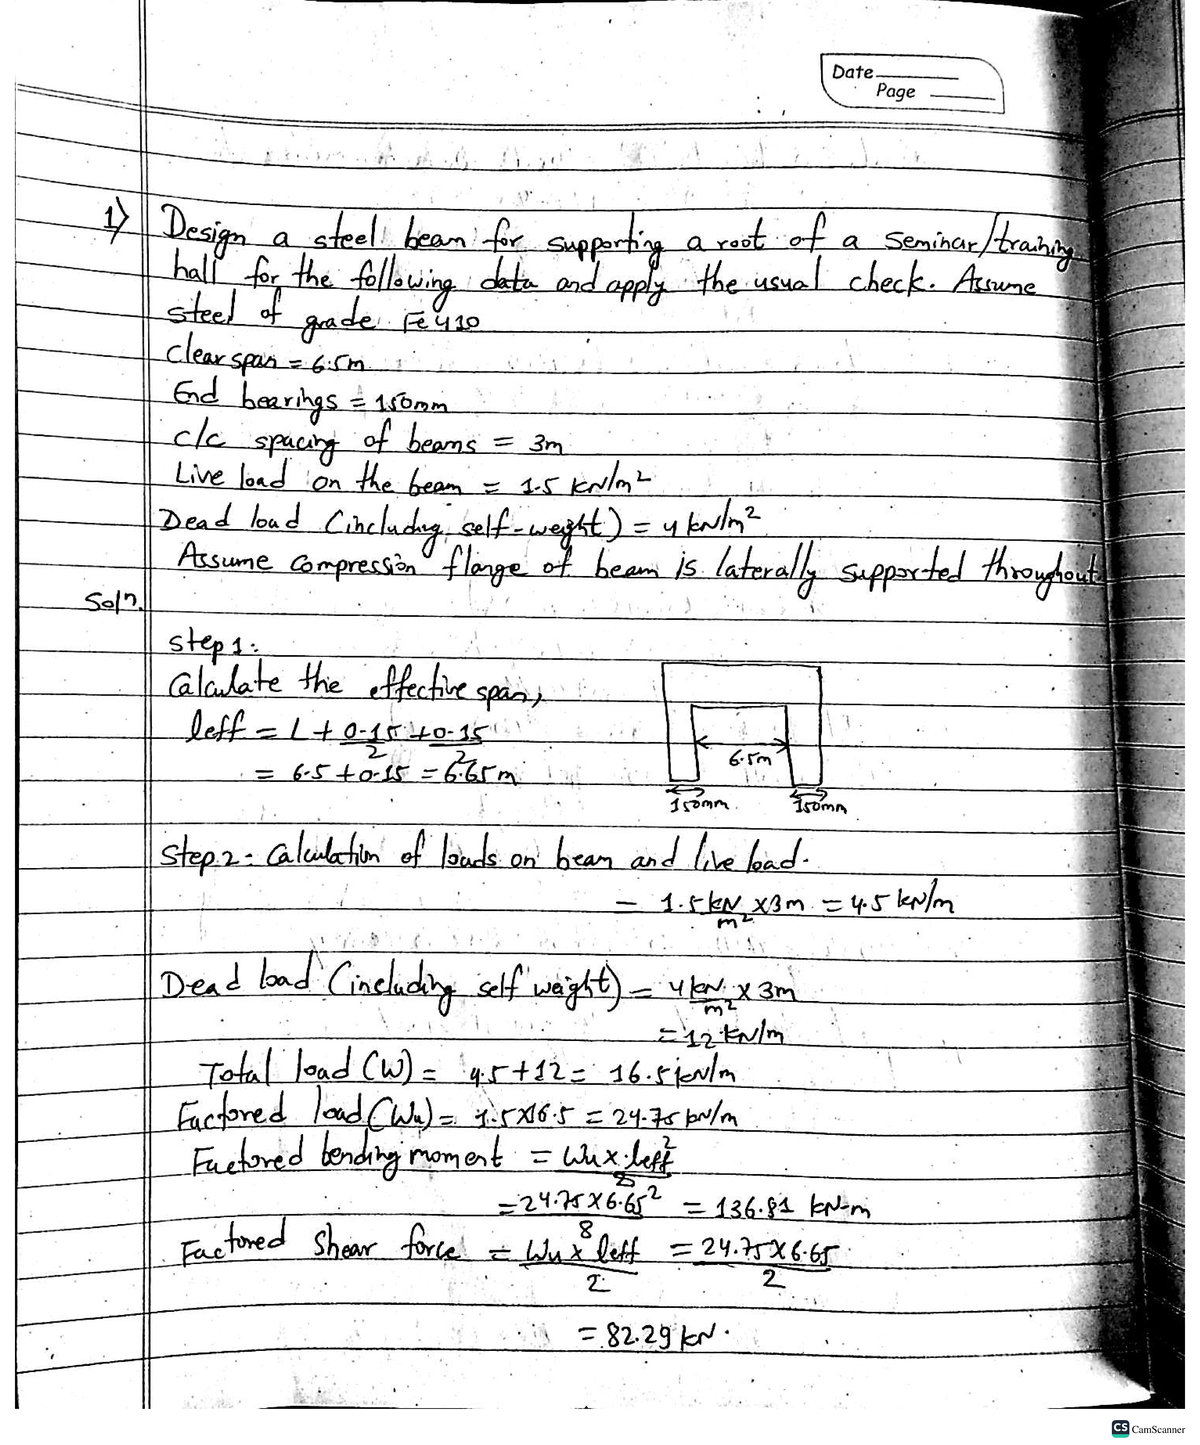 Date
Page
1) Design a steel beam for supporting a roof of a seminar/training
hall for the following data and apply the usual check. Assume
steel of grade Fe410
clear span = 6.5m
End bearings = 150mm
c/c spacing of beams = 3m
Live load on the beam = 1.5 kN/m²
Dead load (including self-weight) = 4 kN/m²
Assume compression flange of beam is laterally supported throughout
Soln.
step 1:
Calculate the effective span,
leff = L + 0.15/2 + 0.15/2
= 6.5 + 0.15 = 6.65m
6.5m
150mm 150mm
Step 2 - Calculation of loads on beam and live load.
= 1.5 kN/m² x 3m = 4.5 kN/m
Dead load (including self weight) = 4 kN/m² x 3m
= 12 kN/m
Total load (W) = 4.5 + 12 = 16.5 kN/m
Factored load (Wu) = 1.5 x 16.5 = 24.75 kN/m
Factored bending moment = Wu x leff²/8
= 24.75 x 6.65²/8 = 136.81 kN-m
Factored Shear force = Wu x leff/2 = 24.75 x 6.65/2
= 82.29 kN.
CS CamScanner